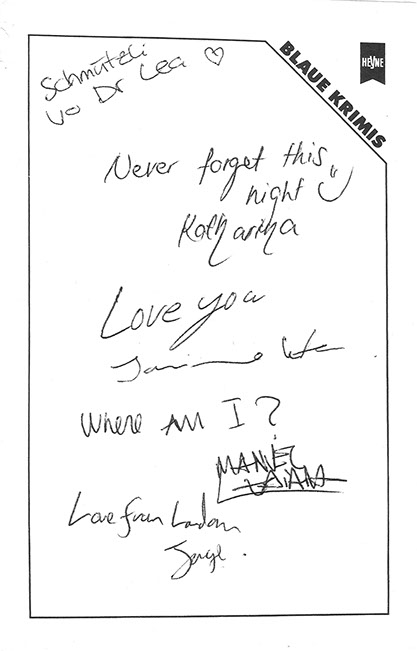 Schmützli
vo Dr Lea
HEYNE
BLAUE KRIMIS
Never forget this
night
Katharina
Love you
Where Am I?
MANUEL
Love from London